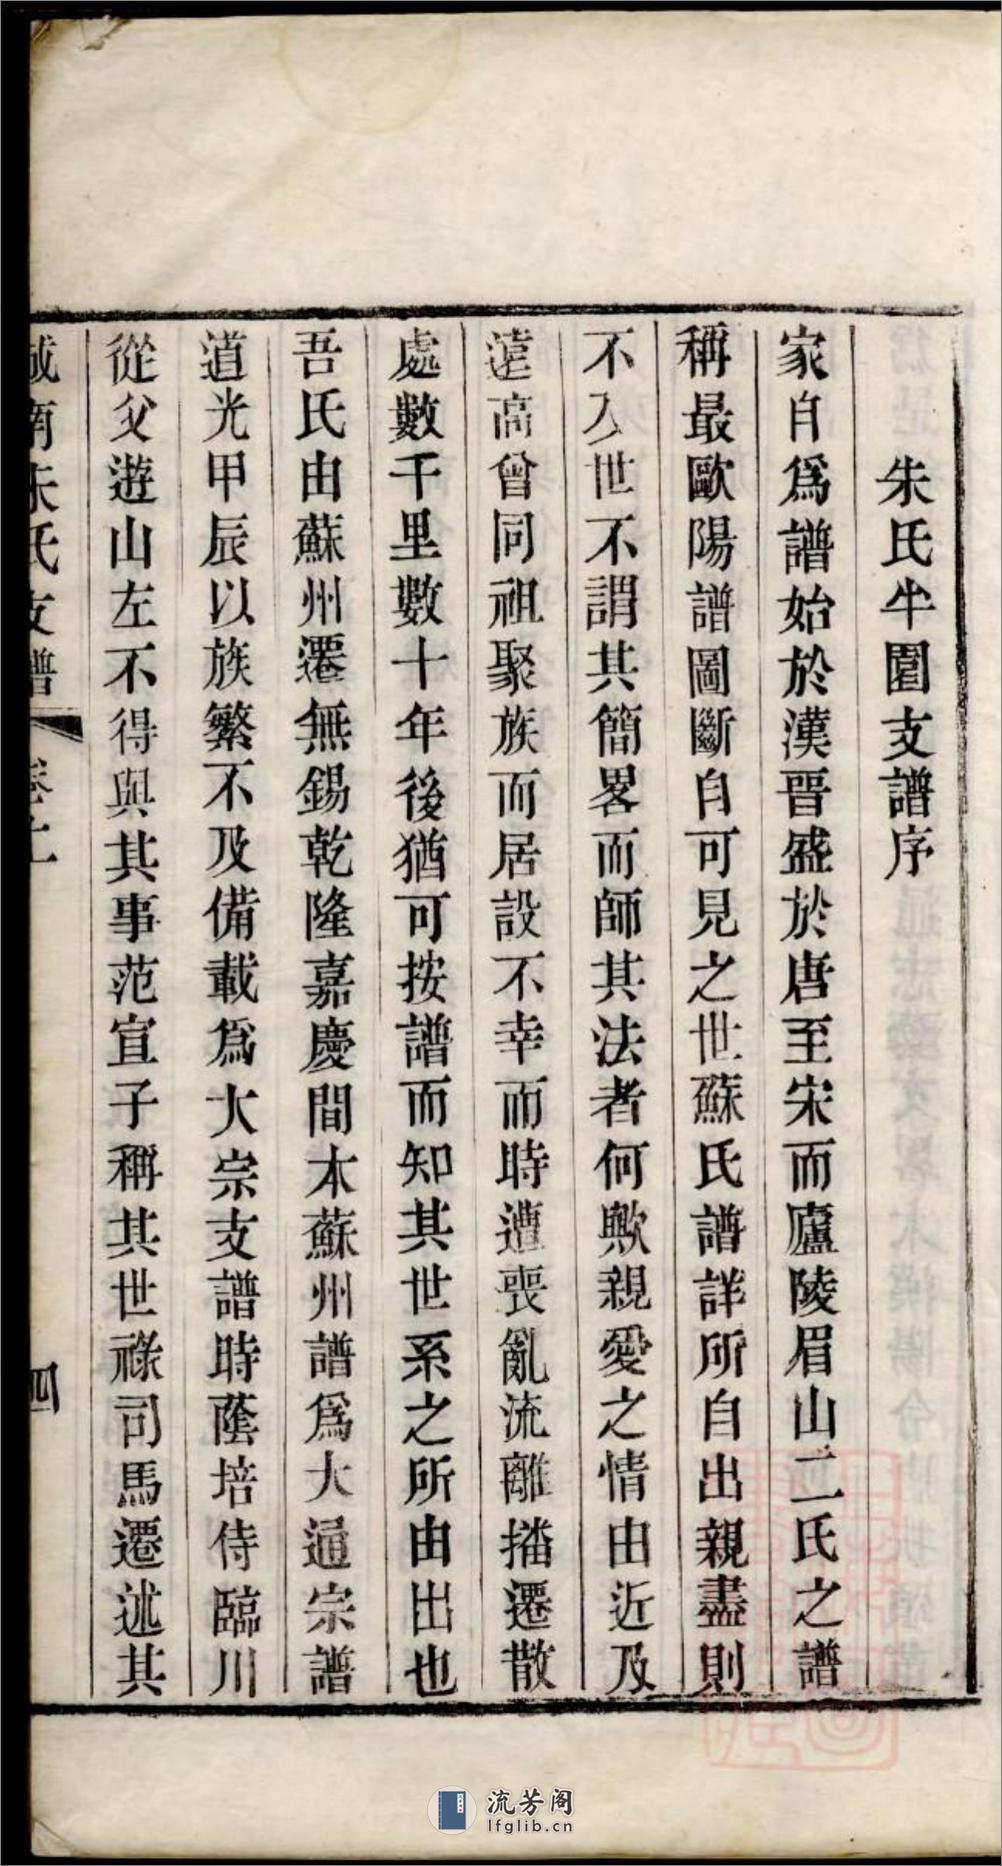 朱氏半園支譜序
家自爲譜始於漢晉盛於唐至宋而廬陵眉山二氏之譜
稱最歐陽譜圖斷自可見之世蘇氏譜詳所自出親盡則
不入世不謂其簡畧而師其法者何歟親愛之情由近及
遠高曾同祖聚族而居設不幸而時遭喪亂流離播遷散
處數千里數十年後猶可按譜而知其世系之所由出也
吾氏由蘇州遷無錫乾隆嘉慶間本蘇州譜爲大通宗譜
道光甲辰以族繁不及備載爲大宗支譜時蔭培侍臨川
從父遊山左不得與其事范宣子稱其世祿司馬遷述其
城南朱氏支譜 卷上 四
流芳阁
lfglib.cn